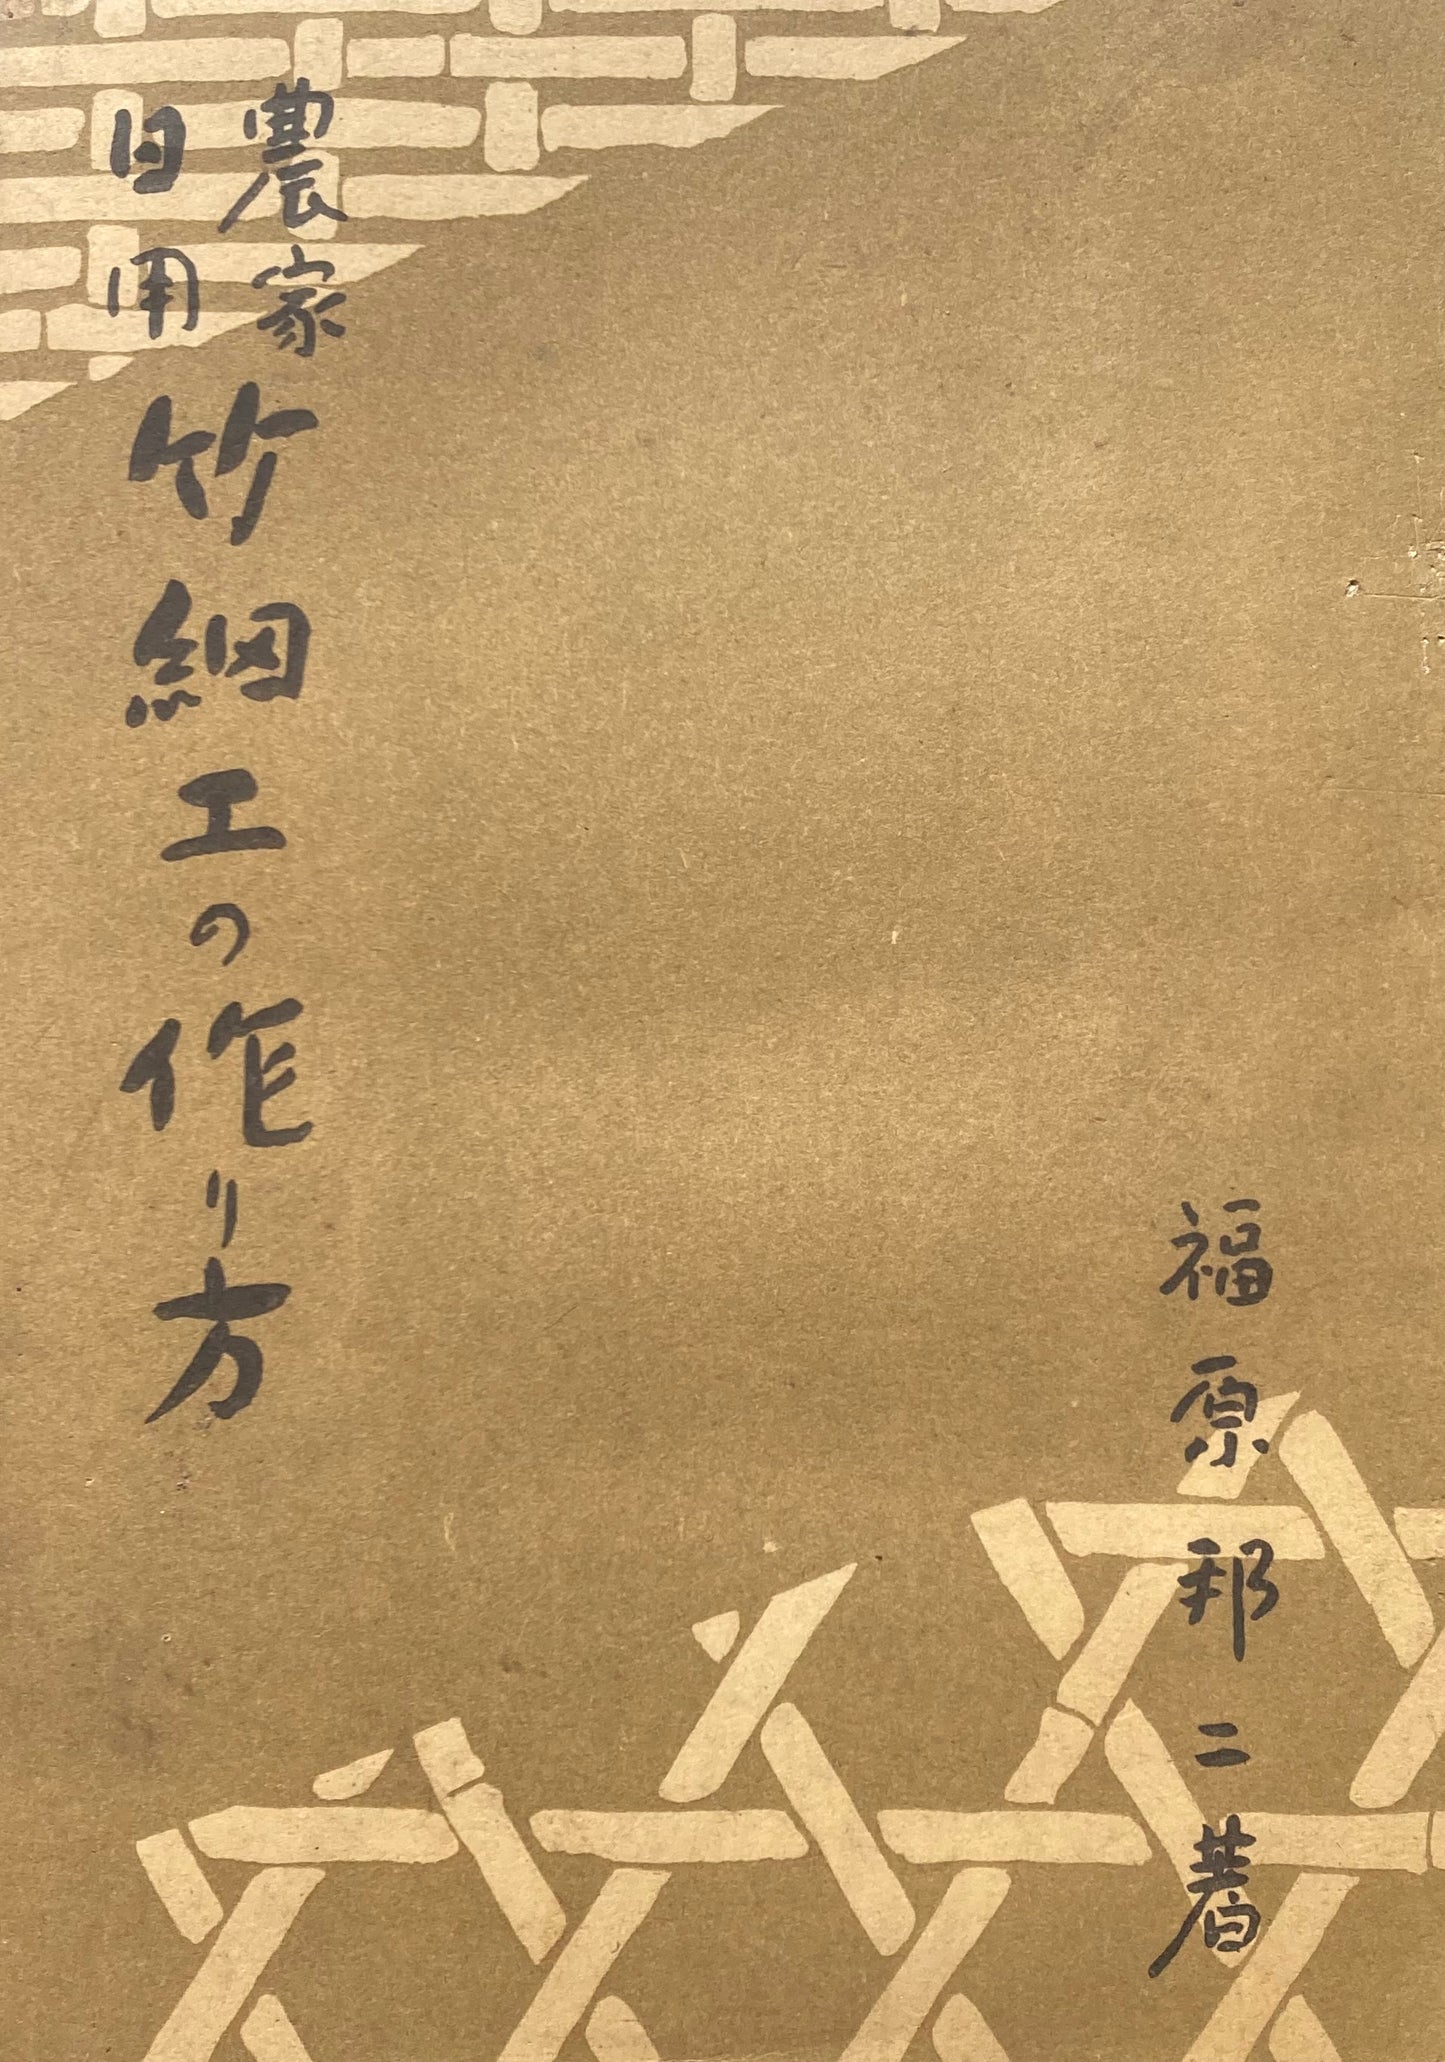 農家
日用
竹細工の作り方
福原邦二著